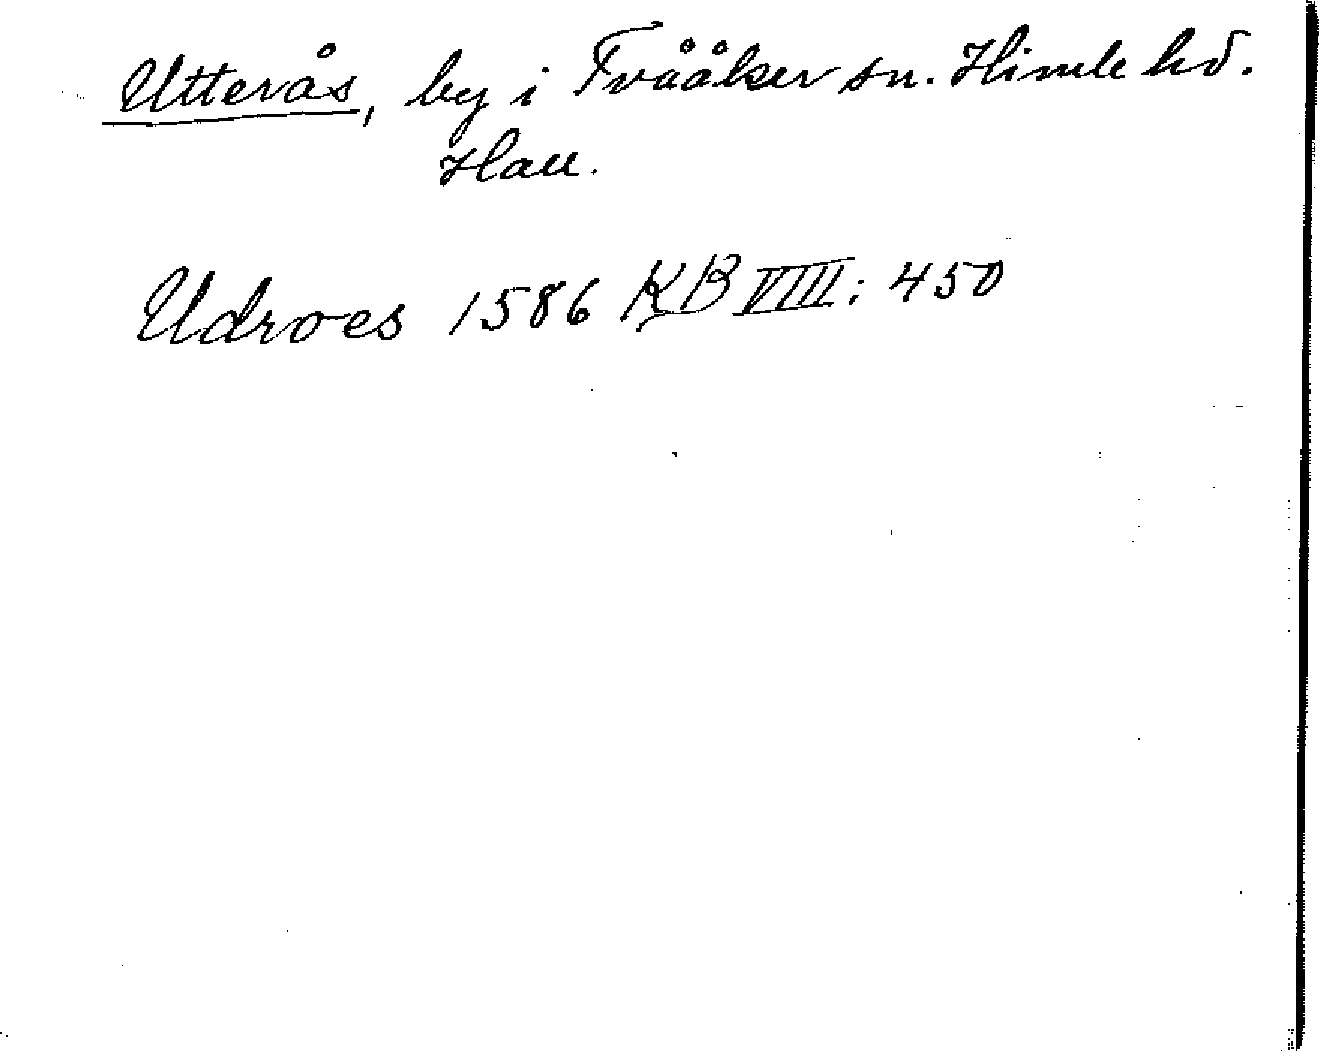 Utterås, by i Tvååker sn. Himle hd.
Hall.
Udroes 1586 KB VIII: 450